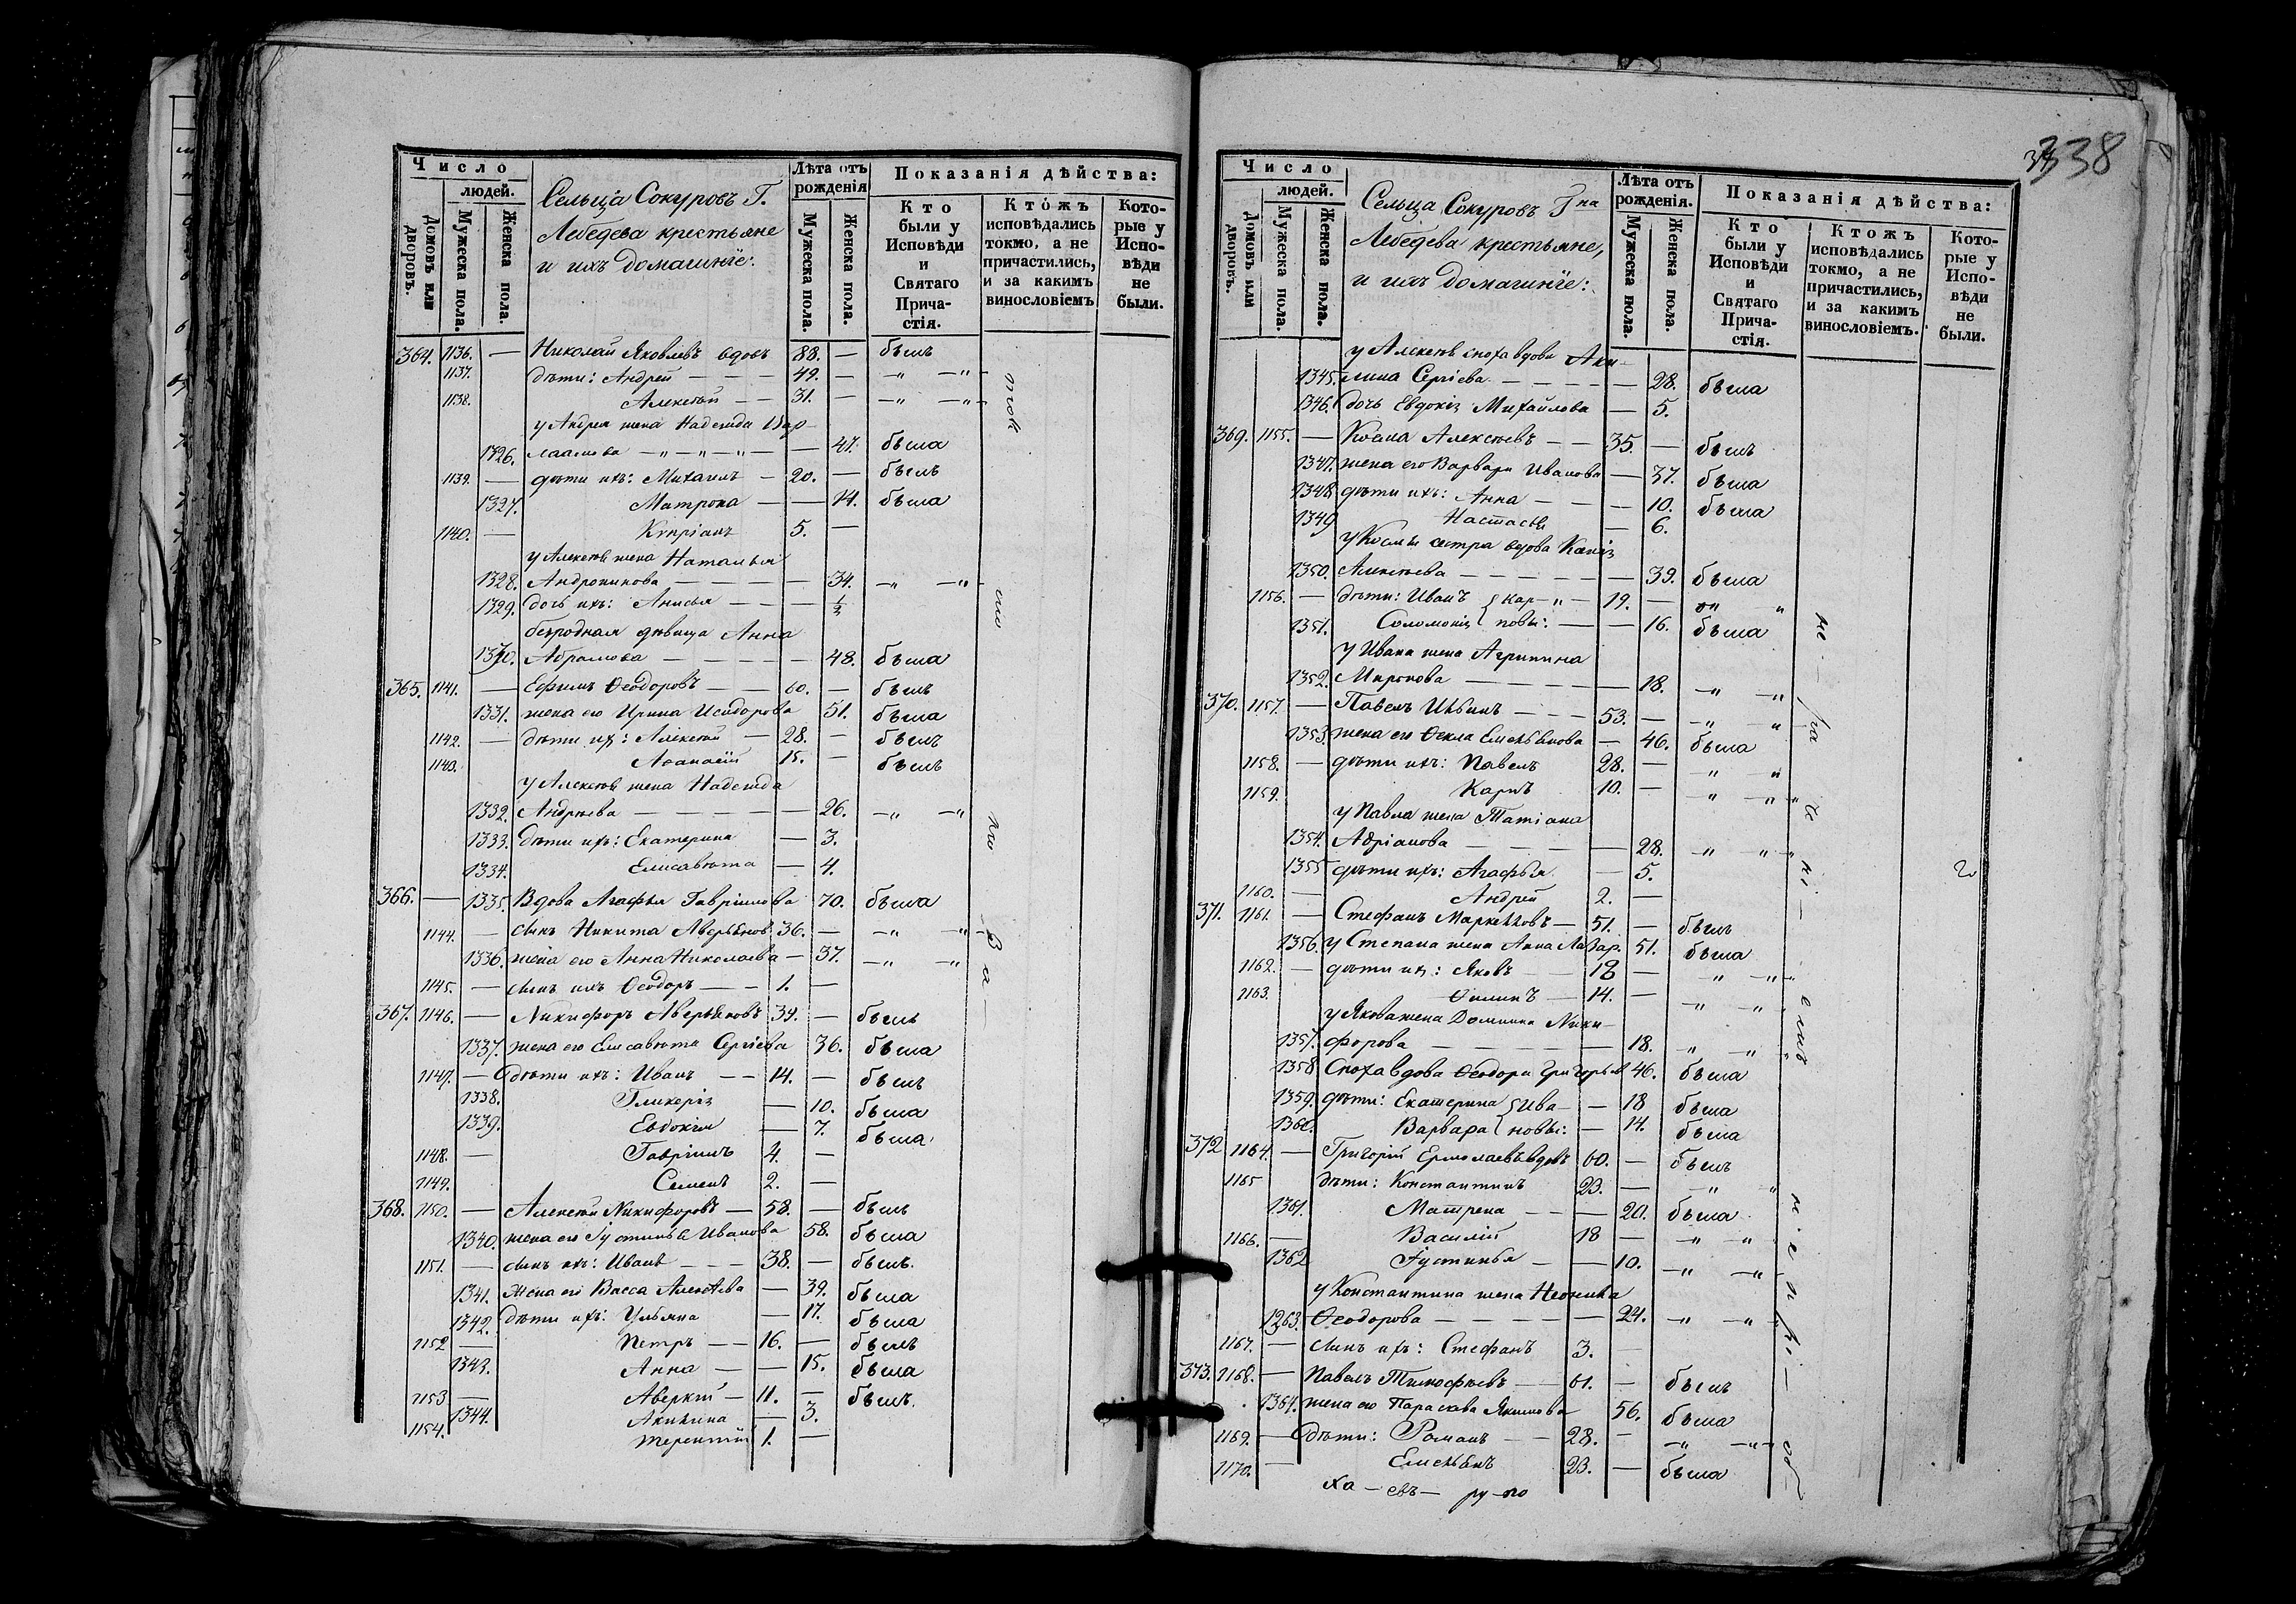 338
Число
людей.
Домовъ или дворовъ.
Мужеска пола.
Женска пола.
Сельца Сокуровъ Г.
Лебедева крестьяне
и ихъ домашніе:
Лѣта отъ рожденія
Мужеска пола.
Женска пола.
Показанія дѣйства:
Кто были у Исповѣди и Святаго Прича-стія.
Ктожъ исповѣдались токмо, а не причастились, и за какимъ винословіемъ
Кото-рые у Испо-вѣди не были.
364. 1136. — Николай Яковлевъ вдовъ 88. — былъ
1137. дѣти: Андрей — — — 49. — —„ —„—
1138. Алексѣй — — 31. — —„ —„—
у Андрея жена Надежда Вар-
1326. лаамова —„—„—„— — 47. была
1139. — дѣти ихъ: Михаилъ — 20. — былъ
1327. Матрона — — 14. была
1140. — Кѵпріанъ 5. —
у Алексѣя жена Наталья
1328. Андроникова — — — — — 34. —„ —„—
1329. дочь ихъ: Анисья — — — ½
безродная дѣвица Анна
1330. Абрамова — — — — — 48. была
365. 1141. — Ефимъ Ѳеодоровъ — — 60. — былъ
1331. жена его Ирина Исидорова 51. была
1142. — дѣти ихъ: Алексѣй — 28. — былъ
1143. Аѳанасій 15. — былъ
у Алексѣя жена Надежда
1332. Андреева — — — — — 26. —„ —„
1333. дѣти ихъ: Екатерина — 3.
1334. Елисавета — 4.
366. — 1335. Вдова Агафья Гавріилова 70. была
1144. — сынъ Никита Аверьяновъ 36. — —„ —„—
1336. жена его Анна Николаева — 37. —„ —„
1145. — сынъ ихъ Ѳеодоръ — — 1. —
367. 1146. — Никифоръ Аверьяновъ 39. — былъ
1337. жена его Елисавета Сергіева 36. была
1147. — дѣти ихъ: Иванъ — — 14. — былъ
1338. Гликерія — 10. была
1339. Евдокія — 7. была
1148. — Гавріилъ 4. —
1149. Семенъ 2. —
368. 1150. — Алексѣй Никифоровъ — 58. — былъ
1340. жена его Іустинья Иванова 58. была
1151. — сынъ ихъ: Иванъ — — — 38. — былъ.
1341. Жена его Васса Алексѣева — 39. была
1342. дѣти ихъ: Ульяна — 17. была
1152 — Петръ — — 16. — былъ
1343. Анна — — 15. была
1153 — Аверкій — 11. — былъ.
1344. Акилина — 3.
1154. Терентій 1. —
Число
людей.
Домовъ или дворовъ.
Мужеска пола.
Женска пола.
Сельца Сокуровъ Гна
Лебедева крестьяне,
и ихъ домашніе:
Лѣта отъ рожденія.
Мужеска пола.
Женска пола.
Показанія дѣйства:
Кто были у Исповѣди и Святаго Прича-стія.
Ктожъ исповѣдались токмо, а не причастились, и за какимъ винословіемъ.
Кото-рые у Испо-вѣди не были.
у Алексѣя сноха вдова Аки-
1345. лина Сергіева — — — — — 28. была
1346. дочь Евдокія Михайлова — 5.
369. 1155. — Косма Алексѣевъ — — 35. — былъ
1347. жена его Варвара Иванова — 37. была
1348 дѣти ихъ: Анна — — — 10. была
1349 Настасья — 6.
у Космы сестра вдова Ксенія
1350. Алексѣева — — — — — — 39. была
1156. — дѣти: Иванъ { Кар—„— 19. — —„ „
1351. Соломонія { повы: — — 16. была
у Ивана жена Агрипина
1352. Миронова — — — — — 18. —„ —„
370. 1157. — Павелъ Ильинъ — — — 53. — —„ „
1353. жена его Ѳекла Емельянова — 46. была
1158. — дѣти ихъ: Павелъ 28. — —„ —„
1159. Карпъ 10. — —„ —„—
у Павла жена Татіана
1354. Адріанова — — — — 28. —„ „—
1355 дѣти ихъ: Агафья — 5.
1160. — Андрей 2. —
2
371. 1161. — Стефанъ Маркелловъ — 51. — былъ
1356. у Степана жена Анна Лазар. 51. была
1162. — дѣти ихъ: Яковъ — — 18 — —„ —„—
1163. Филипъ — 14. — —„ —„
у Якова жена Домника Ники-
1357. форова — — — — — — 18. —„ —„
1358 Сноха вдова Ѳеодора Григорьев. 46. была
1359. дѣти: Екатерина { Ива— — 18 была
1360. Варвара { новы: — 14. была
372 1164. — Григорій Ермолаевъ вдовъ 60. — былъ
1165 дѣти: Константинъ 23. — —„ „
1361. Матрена — — — 20. была
1166. — Василій 18 — —„ —„
1362 Іустинья — — 10. —„ —„
у Константина жена Неонила
1363. Ѳеодорова — — — — — 24. —„ —„
1167. — сынъ ихъ: Стефанъ 3. —
373. 1168. — Павелъ Тимофеевъ — — 61. — былъ
1364. жена его Параскева Якимова 56. была
1169. — дѣти: Романъ — — 28. — —„ —„—
1170. — Емельянъ 23. — была